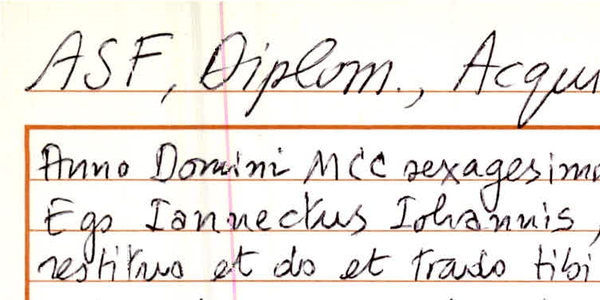 ASF, Diplom., Acqui
Anno Domini MCC sexagesimo
Ego Iannectus Iohannis,
restituo et do et trado tibi